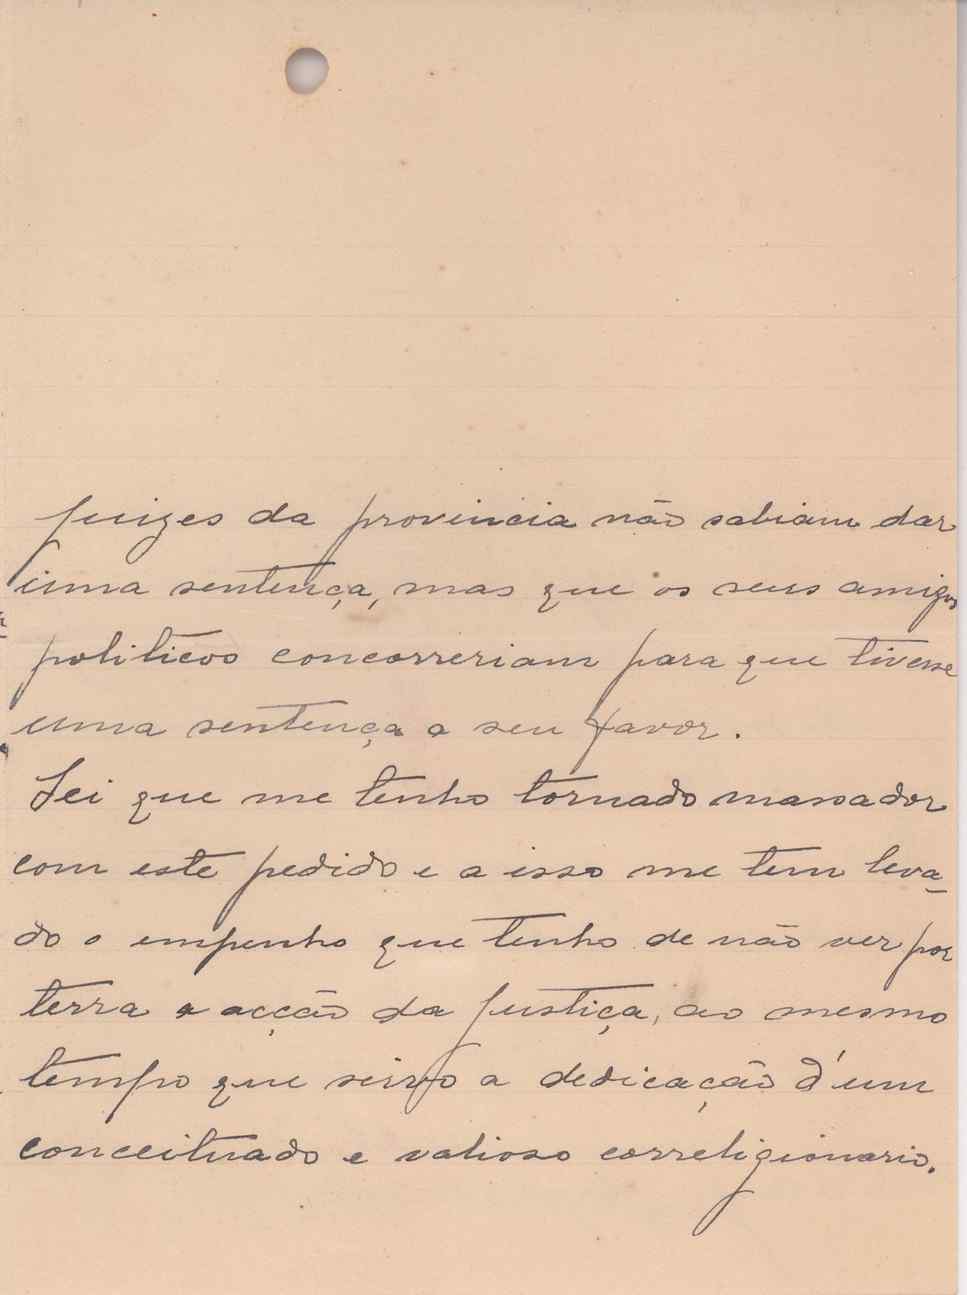 juizes da provincia não sabiam dar
uma sentença, mas que os seus amigos
politicos concorreriam para que tivesse
uma sentença a seu favor.
Sei que me tenho tornado massador
com este pedido e a isso me tem leva-
do o empenho que tenho de não ver por
terra a acção da Justiça, ao mesmo
tempo que sirvo a dedicação d'um
conceituado e valioso correligionario.